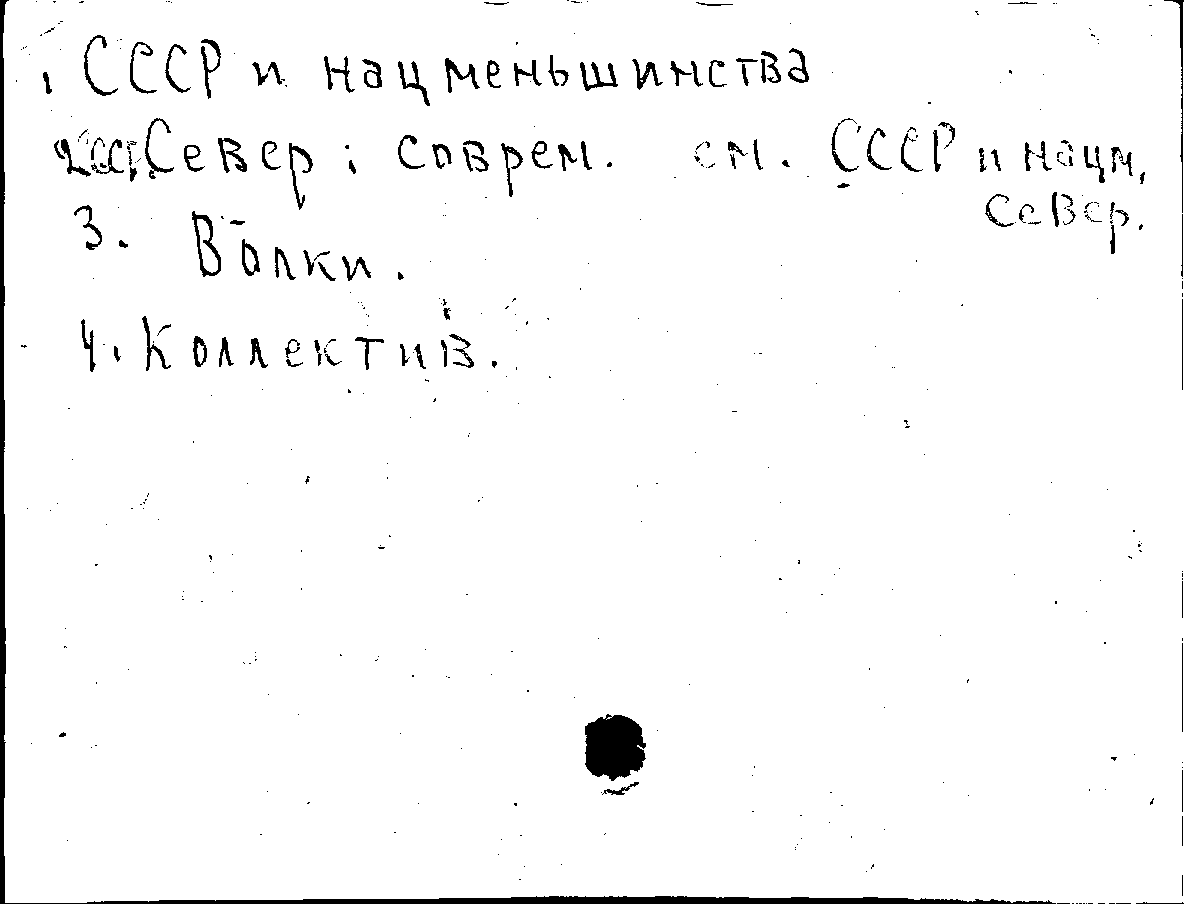 1 СССР и нацменьшинства
2. Север; соврем. см. СССР и нацм,
Север.
3. Волки.
4. Коллектив.